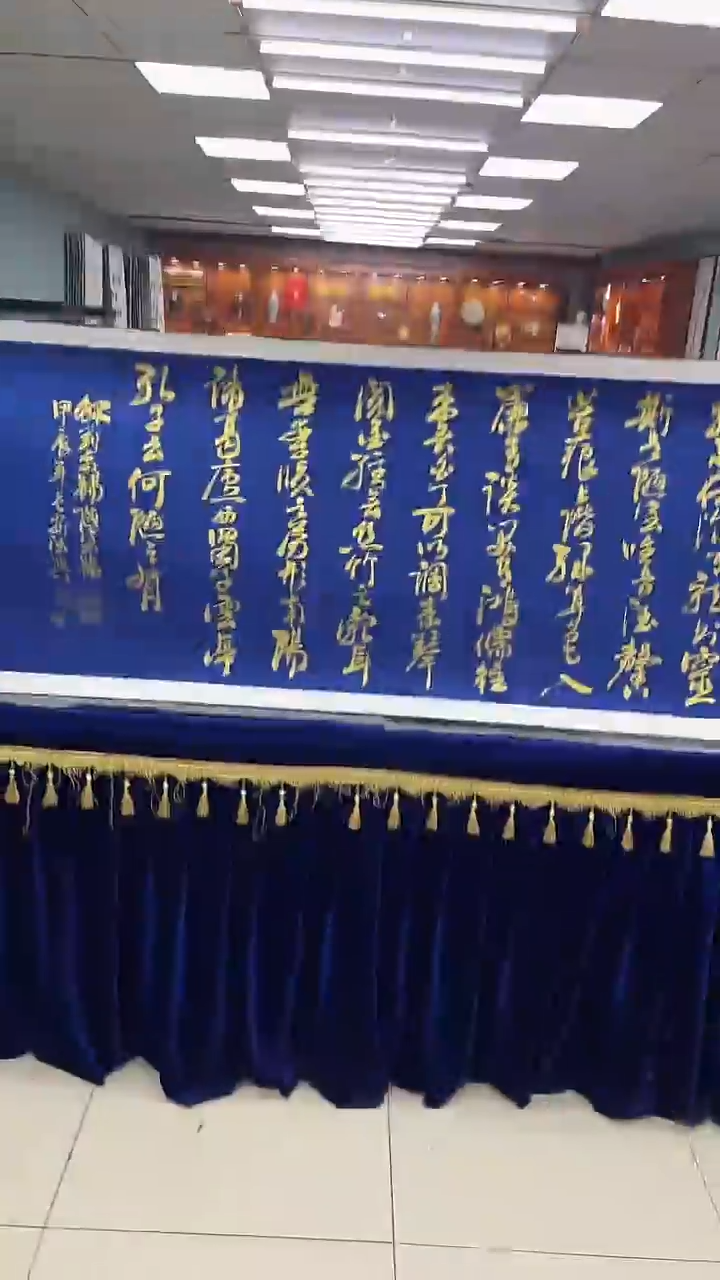 深有龍則靈
斯是陋室唯吾德馨
苔痕上階綠草色入
簾青談笑有鴻儒往
來無白丁可以調素琴
閱金經無絲竹之亂耳
無案牘之勞形南陽
諸葛廬西蜀子雲亭
孔子云何陋之有
劉禹錫陋室銘
甲辰年